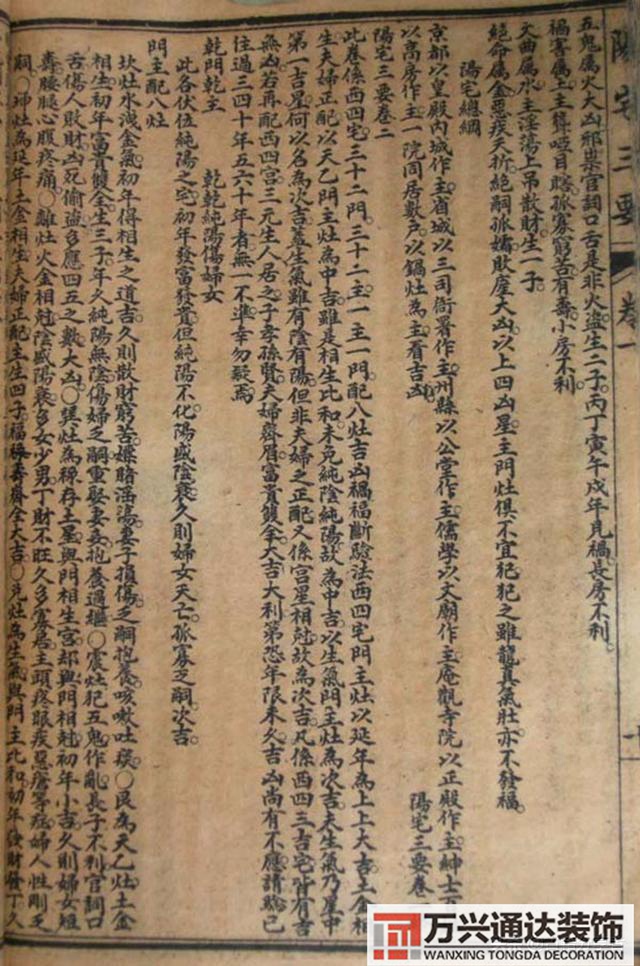 陽宅三要 卷一
五鬼属火大凶邪祟官詞口舌是非火盗生二子丙丁寅午戌年見禍長房不利
禍害属土主聾啞目瞎孤寡窮苦有壽小房不利
文曲属水主淫蕩上吊散財生一子
絶命属金惡疾夭折絶嗣孤孀敗產大凶以上四凶星主門灶俱不宜犯犯之雖龍真氣壯亦不發福
陽宅總綱
京都以皇殿內城作主省城以三司衙署作主州縣以公堂作主儒學以文廟作主庵觀寺院以正殿作主紳士
以高房作主一院同居數戶以鍋灶為主看吉凶
陽宅三要卷一
陽宅三要卷二
此卷係西四宅三十二門三十二主一主一門配八灶吉凶禍福斷驗法西四宅門主灶以延年為上上大吉土金相
生夫婦正配以天乙門主灶為中吉雖是相生比和未免純陰純陽故為中吉以生氣門主灶為次吉夫生氣乃星中
第一吉星何以名為次吉蓋生氣雖有陰有陽但非夫婦之正配又係宮星相尅故為次吉凡係西四三吉宅皆有吉
無凶若再配西四宮三元生人居之子孝孫賢夫婦齊眉富貴雙全大吉大利第恐年限未久吉凶尚有不應請驗已
往過三四十年五六十年者無一不準幸勿疑焉
乾門乾主 乾乾純陽傷婦女
此各伏位純陽之宅初年發富發貴但純陽不化陽盛陰衰久則婦女夭亡孤寡乏嗣次吉
門主配八灶
坎灶水洩金氣初年得相生之道吉久則散財窮苦嫖賭淫蕩妻子損傷乏嗣抱養咳嗽吐痰○艮為天乙灶土金
相生初年富貴雙全生三子年久純陽無陰傷婦乏嗣重娶妻妾抱養過繼○震灶犯五鬼作亂長子不利官詞口
舌傷人敗財凶死偷盗多應四五之數大凶○巽灶為祿存土星與門相生宮却與門相尅初年小吉久則婦女短
壽腰腿心腹疼痛○離灶火金相尅陰盛陽衰多女少男丁財不旺久多寡居主頭疼眼疾惡瘡等症婦人性剛乏
嗣○坤灶為延年土金相生夫婦正配主生四子福祿壽齊全大吉○兌灶為生氣與門主比和初年發財發丁久
万兴通达装饰
WANXING TONGDA DECORATION